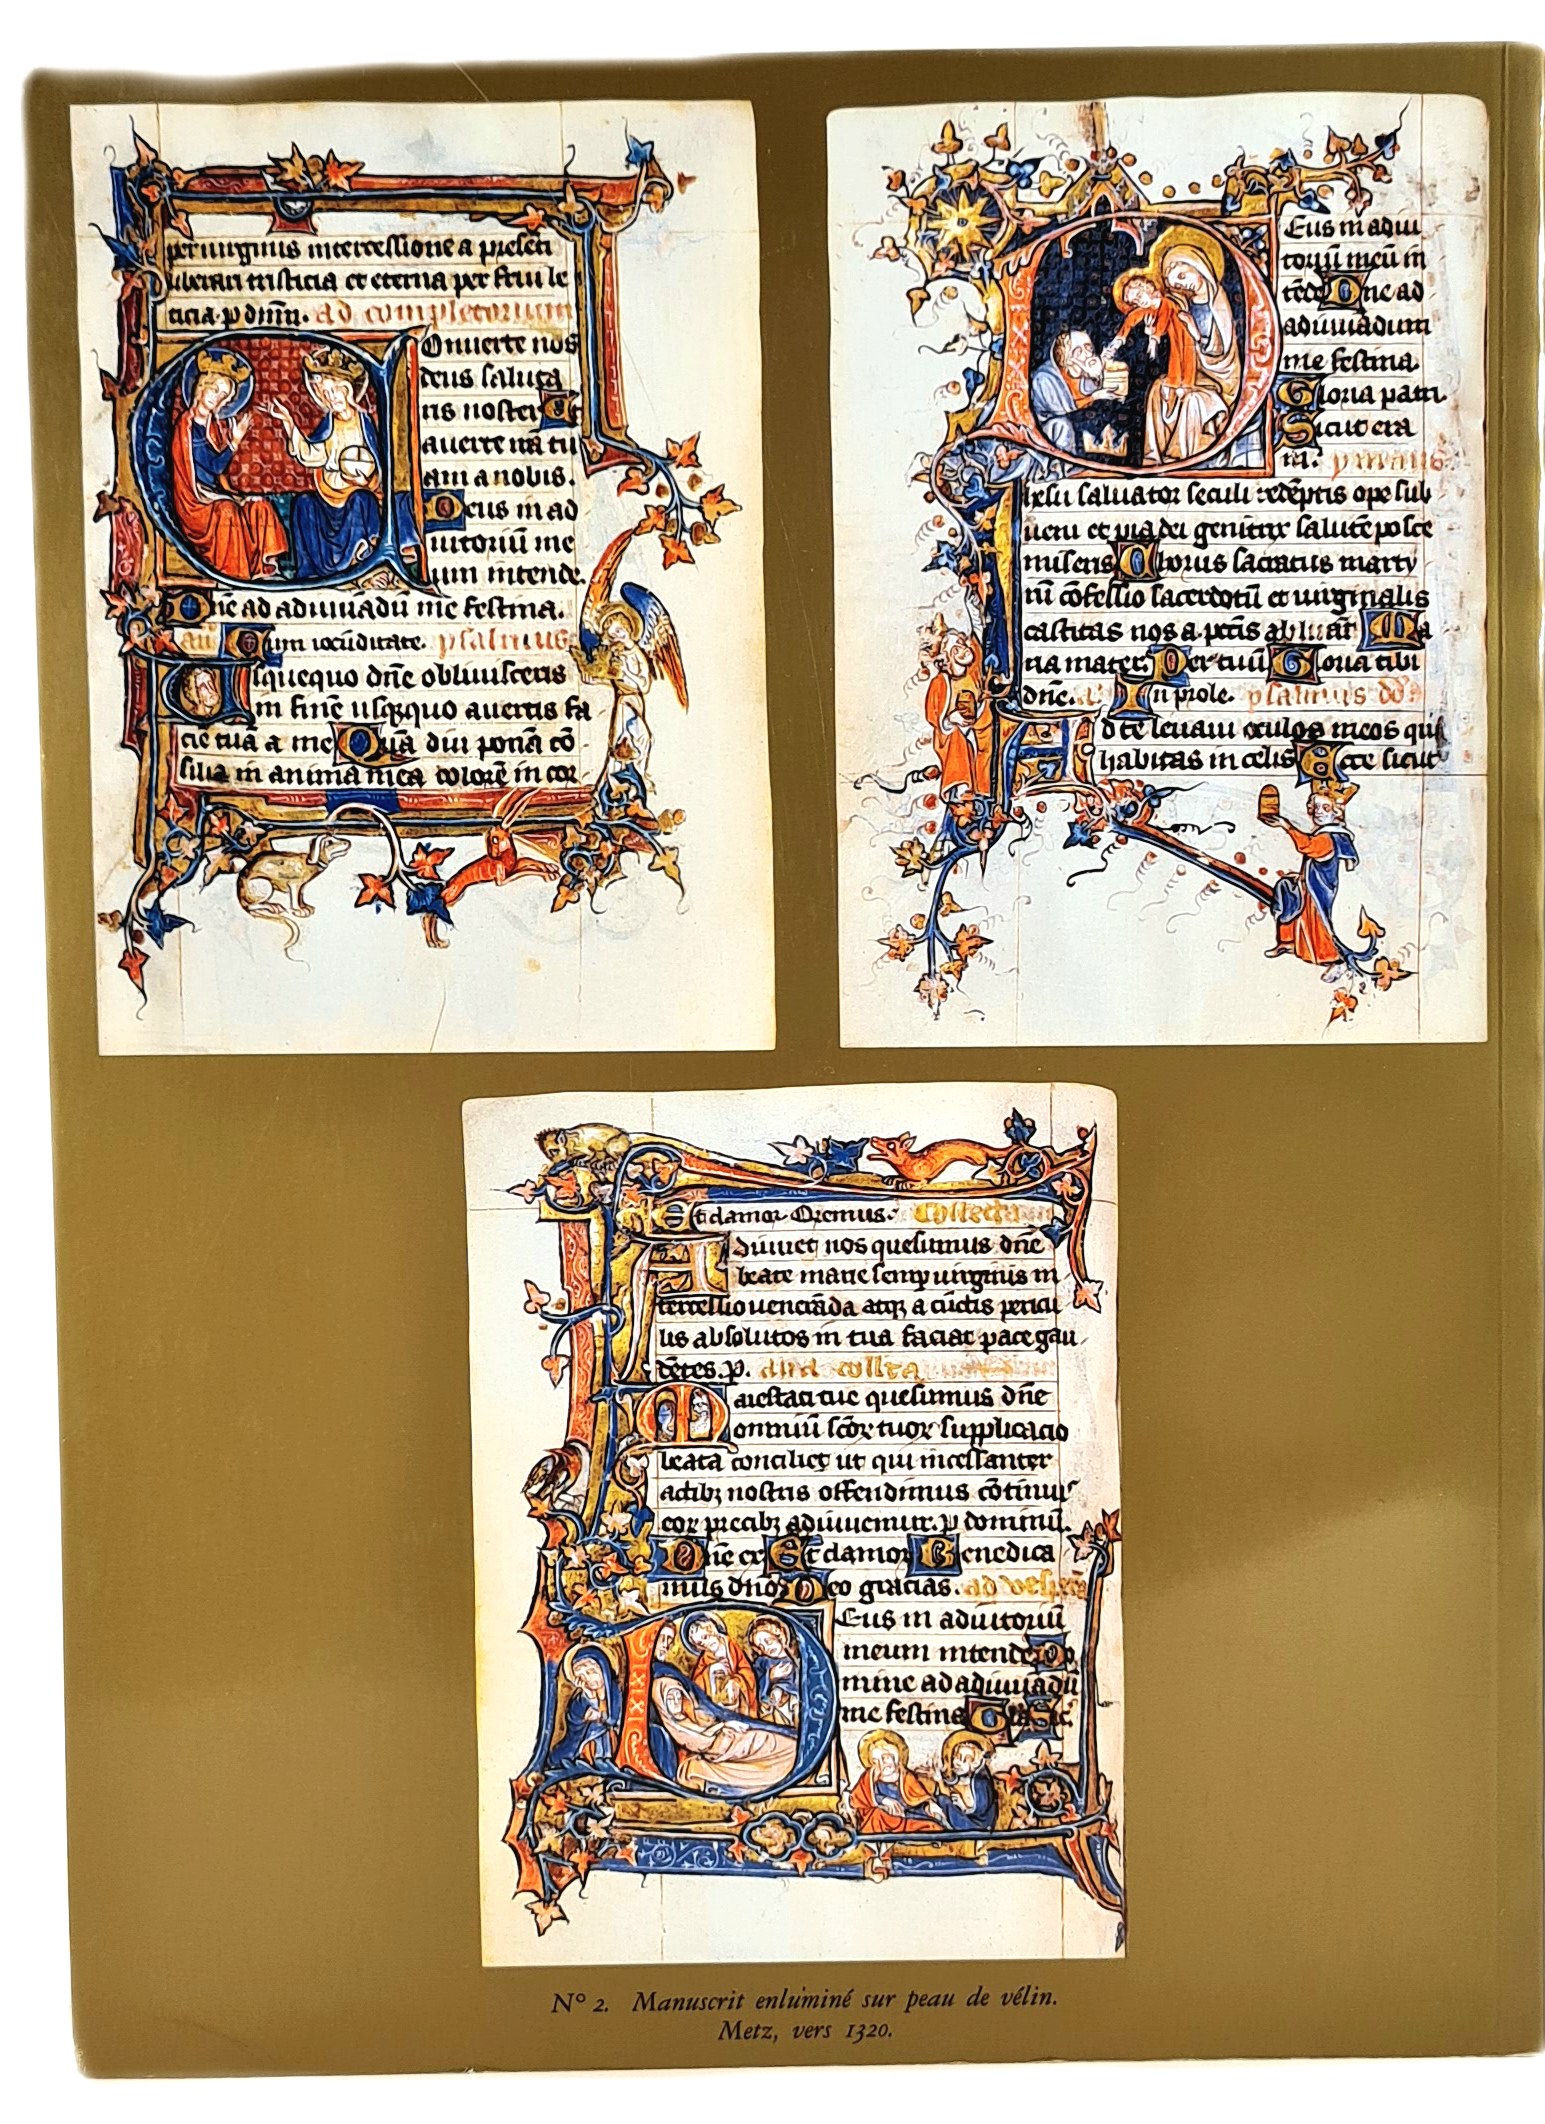 per uirginis intercessione a presenti
liberari tristicia et eterna per frui le
ticia. p dnm. ad completorium
Onuerte nos
deus saluta
ris noster Et
auerte irā tu
am a nobis.
Deus in ad
iutoriū me
um intende.
Dn̄e ad adiuuādū me festina.
an̄ Cum iocūditate. psalmus
Usquequo dn̄e obliuisceris
in finē usquequo auertis fa
ciē tuā a me Quā diu ponā cō
silia in anima mea dolorē in cor
Eus in adiu
toriū meū in
tēde Dne ad
adiuuādum
me festina
Gloria patri.
Sicut era
ihesu saluator seculi redēptis ope sub
ueni et pia dei genitrix salutē posce
miseris Chorus sacratus marty
rū cōfessio sacerdotū et uirginalis
castitas nos a pctīs abluat Ma
ria mater Per tuū Gloria tibi
dn̄e. In prole. psalmus dd
Ad te leuaui oculos meos qui
habitas in celis Ecce sicut
Et clamor. Oremus. Collecta
Adiuuet nos quesumus dn̄e
beate marie semp uirginis in
tercessio uenerāda atqꝫ a cūctis pericu
lis absolutos in tua faciat pace gau
dētes. p. alia collecta
Maiestati tue quesumus dn̄e
omniū scōꝝ tuoꝝ supplicacio
beata conciliet ut qui incessanter
actibꝫ nostris offendimus cōtinuis
eoꝝ precibꝫ adiuuemur. p dominū.
Dn̄e ex Et clamor Benedica
mus dn̄o Deo gracias. ad vesperas
Eus in adiutoriū
meum intende Do
mine ad adiuuādū
me festina Gla Sic.
N° 2. Manuscrit enluminé sur peau de vélin.
Metz, vers 1320.